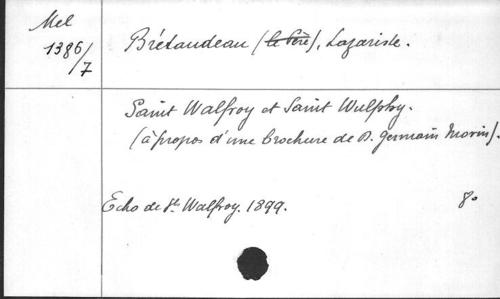 Mel
1386/7
Brétaudeau (le Père), Lazariste.
Saint Walfroy et Saint Wulphy.
(à propos d'une brochure de D. Germain Morin).
Echo de St Walfroy. 1899. 8o